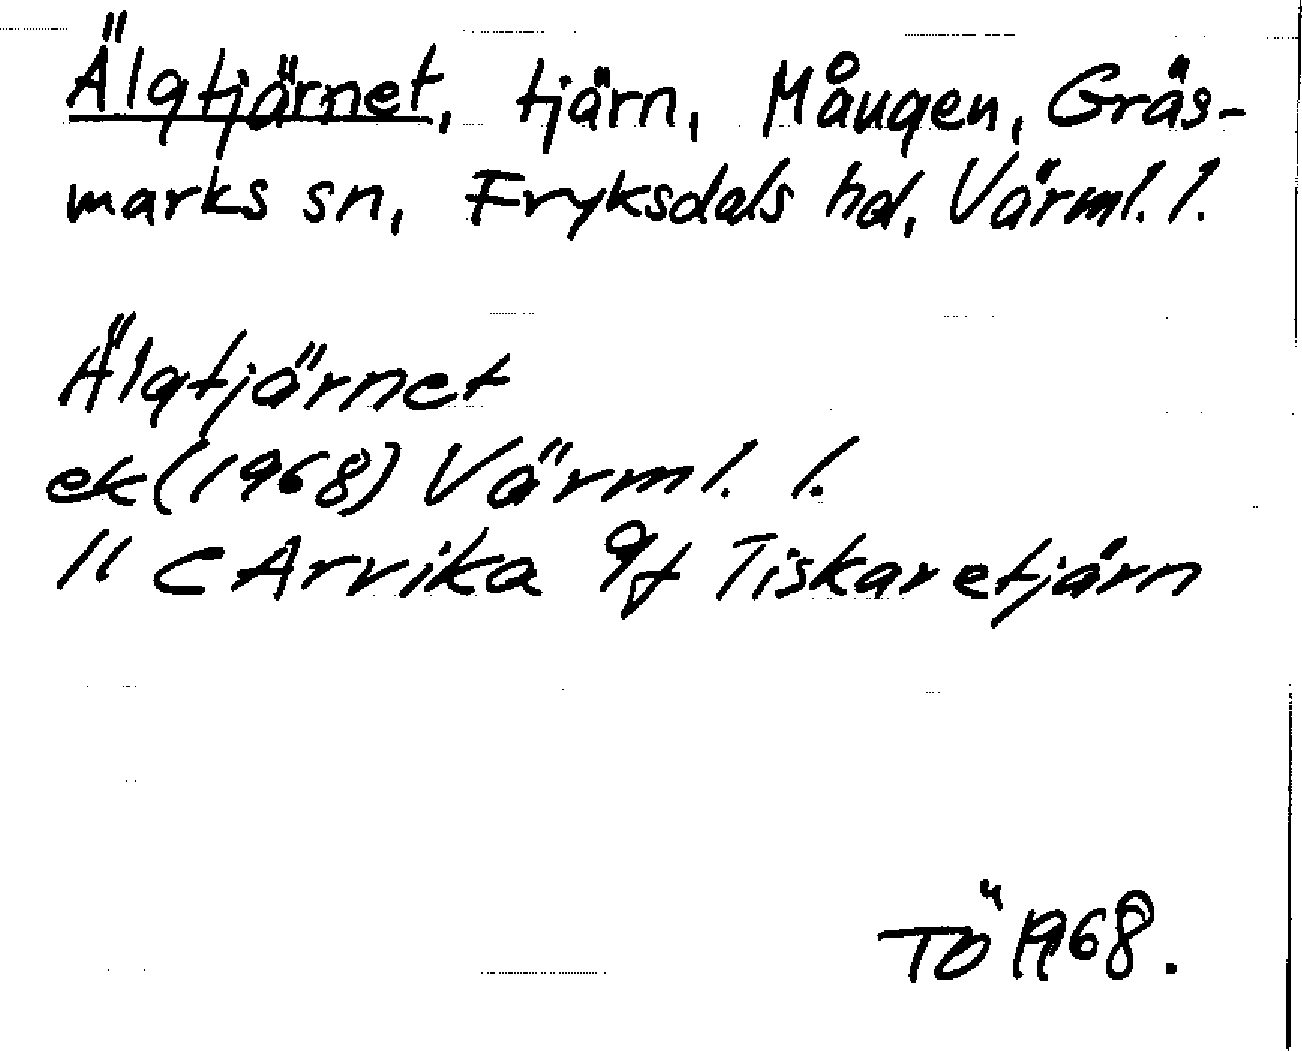 Älgtjärnet, tjärn, Mången, Gräs-
marks sn, Fryksdals hd, Värml. l.
Älgtjärnet
ek (1968) Värml. l.
11 C Arvika 9f Tiskaretjärn
TÖ 1968.